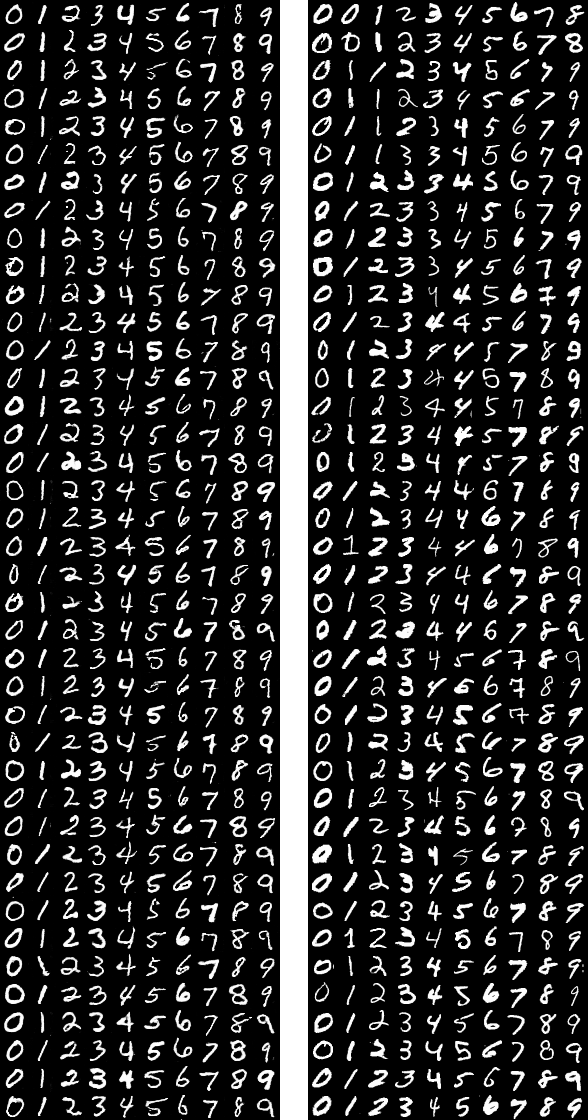 0 1 2 3 4 5 6 7 8 9
0 1 2 3 4 5 6 7 8 9
0 1 2 3 4 5 6 7 8 9
0 1 2 3 4 5 6 7 8 9
0 1 2 3 4 5 6 7 8 9
0 1 2 3 4 5 6 7 8 9
0 1 2 3 4 5 6 7 8 9
0 1 2 3 4 5 6 7 8 9
0 1 2 3 4 5 6 7 8 9
0 1 2 3 4 5 6 7 8 9
0 1 2 3 4 5 6 7 8 9
0 1 2 3 4 5 6 7 8 9
0 1 2 3 4 5 6 7 8 9
0 1 2 3 4 5 6 7 8 9
0 1 2 3 4 5 6 7 8 9
0 1 2 3 4 5 6 7 8 9
0 1 2 3 4 5 6 7 8 9
0 1 2 3 4 5 6 7 8 9
0 1 2 3 4 5 6 7 8 9
0 1 2 3 4 5 6 7 8 9
0 1 2 3 4 5 6 7 8 9
0 1 2 3 4 5 6 7 8 9
0 1 2 3 4 5 6 7 8 9
0 1 2 3 4 5 6 7 8 9
0 1 2 3 4 5 6 7 8 9
0 1 2 3 4 5 6 7 8 9
0 1 2 3 4 5 6 7 8 9
0 1 2 3 4 5 6 7 8 9
0 1 2 3 4 5 6 7 8 9
0 1 2 3 4 5 6 7 8 9
0 1 2 3 4 5 6 7 8 9
0 1 2 3 4 5 6 7 8 9
0 1 2 3 4 5 6 7 8 9
0 1 2 3 4 5 6 7 8 9
0 1 2 3 4 5 6 7 8 9
0 1 2 3 4 5 6 7 8 9
0 1 2 3 4 5 6 7 8 9
0 1 2 3 4 5 6 7 8 9
0 1 2 3 4 5 6 7 8 9
0 1 2 3 4 5 6 7 8 9
0 0 1 2 3 4 5 6 7 8
0 0 1 2 3 4 5 6 7 8
0 1 1 2 3 4 5 6 7 9
0 1 1 2 3 4 5 6 7 9
0 1 1 2 3 4 5 6 7 9
0 1 1 3 3 4 5 6 7 9
0 1 2 3 3 4 5 6 7 9
0 1 2 3 3 4 5 6 7 9
0 1 2 3 3 4 5 6 7 9
0 1 2 3 3 4 5 6 7 9
0 1 2 3 4 4 5 6 7 9
0 1 2 3 4 4 5 6 7 9
0 1 2 3 4 4 5 7 8 9
0 1 2 3 4 4 5 7 8 9
0 1 2 3 4 4 5 7 8 9
0 1 2 3 4 4 5 7 8 9
0 1 2 3 4 4 5 7 8 9
0 1 2 3 4 4 6 7 8 9
0 1 2 3 4 4 6 7 8 9
0 1 2 3 4 4 6 7 8 9
0 1 2 3 4 4 6 7 8 9
0 1 2 3 4 4 6 7 8 9
0 1 2 3 4 4 6 7 8 9
0 1 2 3 4 5 6 7 8 9
0 1 2 3 4 5 6 7 8 9
0 1 2 3 4 5 6 7 8 9
0 1 2 3 4 5 6 7 8 9
0 1 2 3 4 5 6 7 8 9
0 1 2 3 4 5 6 7 8 9
0 1 2 3 4 5 6 7 8 9
0 1 2 3 4 5 6 7 8 9
0 1 2 3 4 5 6 7 8 9
0 1 2 3 4 5 6 7 8 9
0 1 2 3 4 5 6 7 8 9
0 1 2 3 4 5 6 7 8 9
0 1 2 3 4 5 6 7 8 9
0 1 2 3 4 5 6 7 8 9
0 1 2 3 4 5 6 7 8 9
0 1 2 3 4 5 6 7 8 9
0 1 2 3 4 5 6 7 8